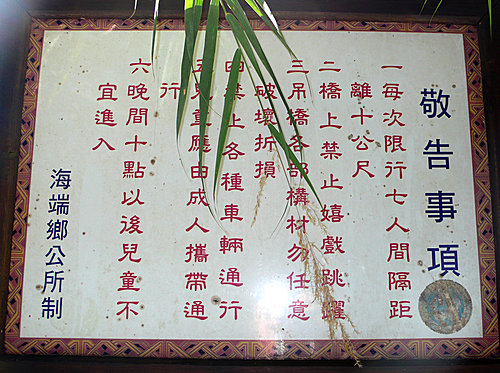 敬告事項
一每次限行七人間隔距
離十公尺
二橋上禁止嬉戲跳躍
三吊橋各部構材勿任意
破壞折損
四禁止各種車輛通行
五兒童應由成人攜帶通
行
六晚間十點以後兒童不
宜進入
海端鄉公所制